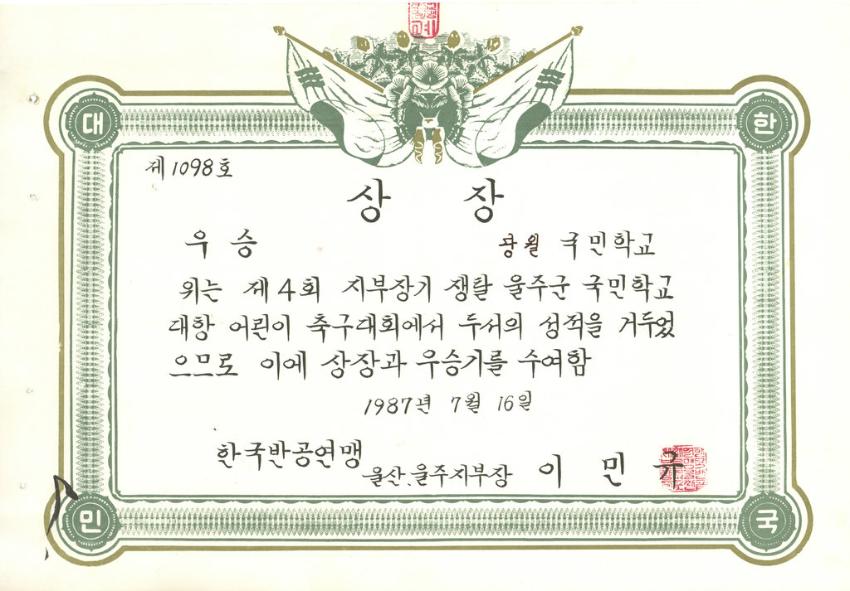 대 한
제 1098 호
상 장
우 승
장월 국민학교
위는 제 4 회 지부장기 쟁탈 울주군 국민학교
대항 어린이 축구대회에서 두서의 성적을 거두었
으므로 이에 상장과 우승기를 수여함
1987년 7월 16일
한국반공연맹
울산.울주지부장 이 민 규
민 국